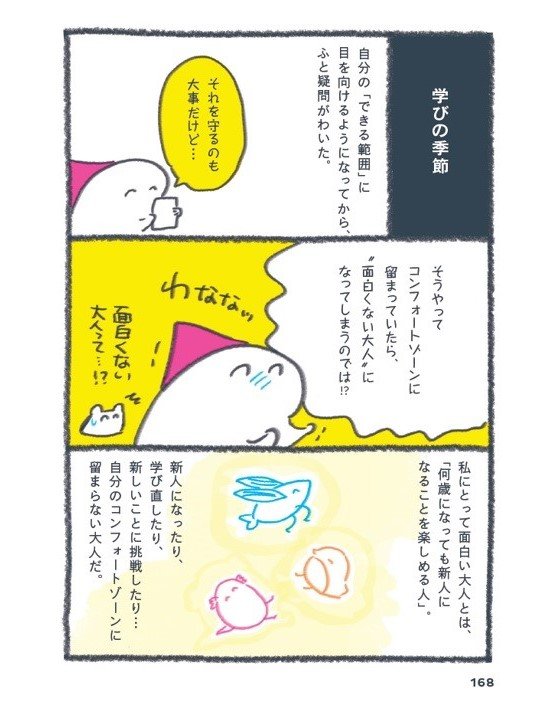 学びの季節
自分の「できる範囲」に
目を向けるようになってから、
ふと疑問がわいた。
それを守るのも
大事だけど…
そうやって
コンフォートゾーンに
留まっていたら、
“面白くない大人”に
なってしまうのでは!?
わなない
面白くない
大人って…!?
私にとって面白い大人とは、
「何歳になっても新人に
なることを楽しめる人」。
新人になったり、
学び直したり、
新しいことに挑戦したり…
自分のコンフォートゾーンに
留まらない大人だ。
168